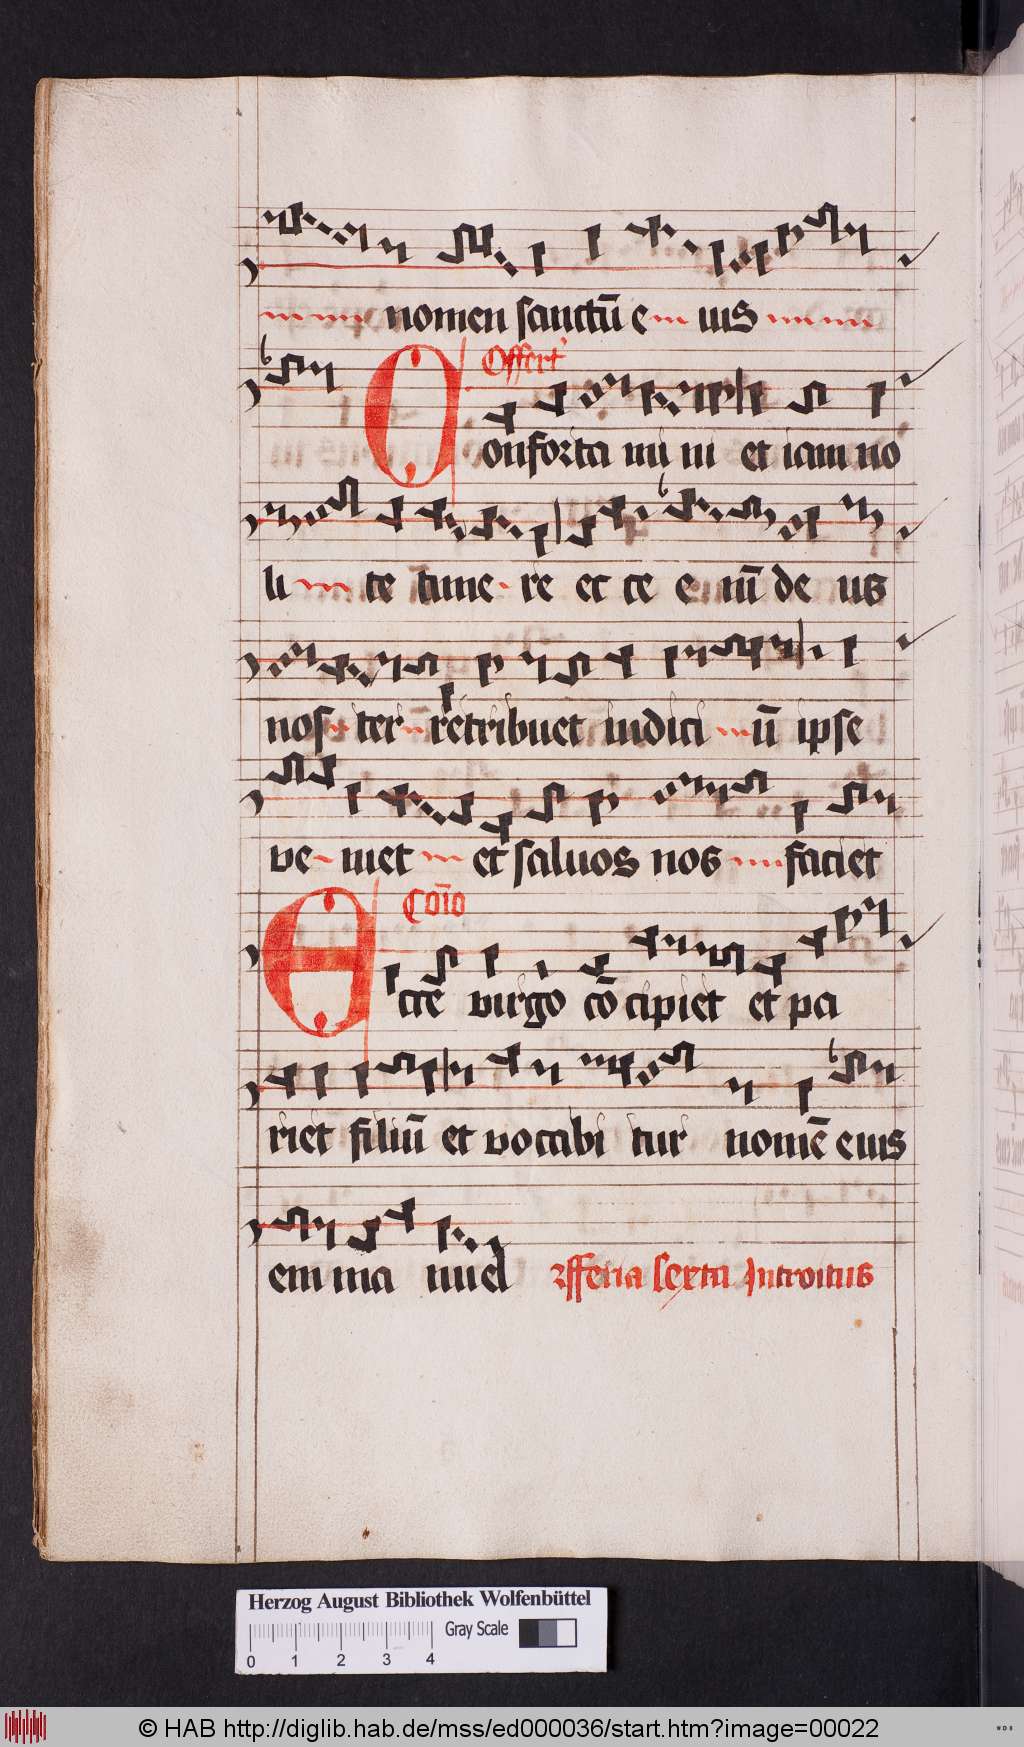 nomen sanctū e ius
Offert
Conforta mi ni et iam no
li te time re ec ce e nī de us
nos ter retribuet iudici ū ipse
ve niet et saluos nos faciet
Cōio
Ecce virgo cōcipiet et pa
riet filiū et vocabi tur nomē eius
em ma nuel feria sexta Introitus
Herzog August Bibliothek Wolfenbüttel
Gray Scale
0 1 2 3 4
© HAB http://diglib.hab.de/mss/ed000036/start.htm?image=00022